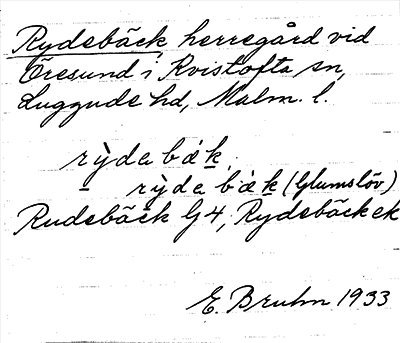 Rydebäck, herregård vid
Öresund i Kvistofta sn,
Luggude hd, Malm. l.
rỳdabàk.
rỳdabàk (Glumslöv)
Rudebäck G4, Rydebäck ek
E. Bruhn 1933